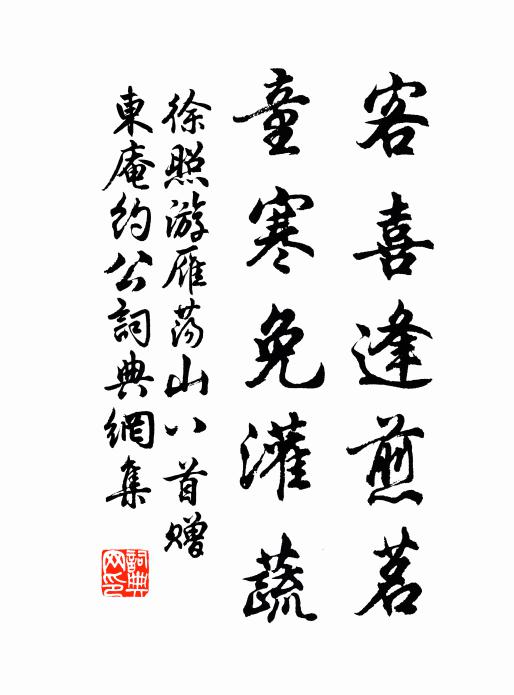 客喜逢煎茗
童寒免灌蔬
徐照游雁荡山八首赠
東庵约公詞典網集
詞典
网印